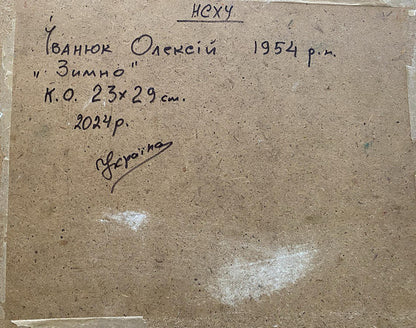 НСХУ
Іванюк Олексій 1954 р.н.
„Зимно"
К.О. 23x29 см.
2024р.
Україна